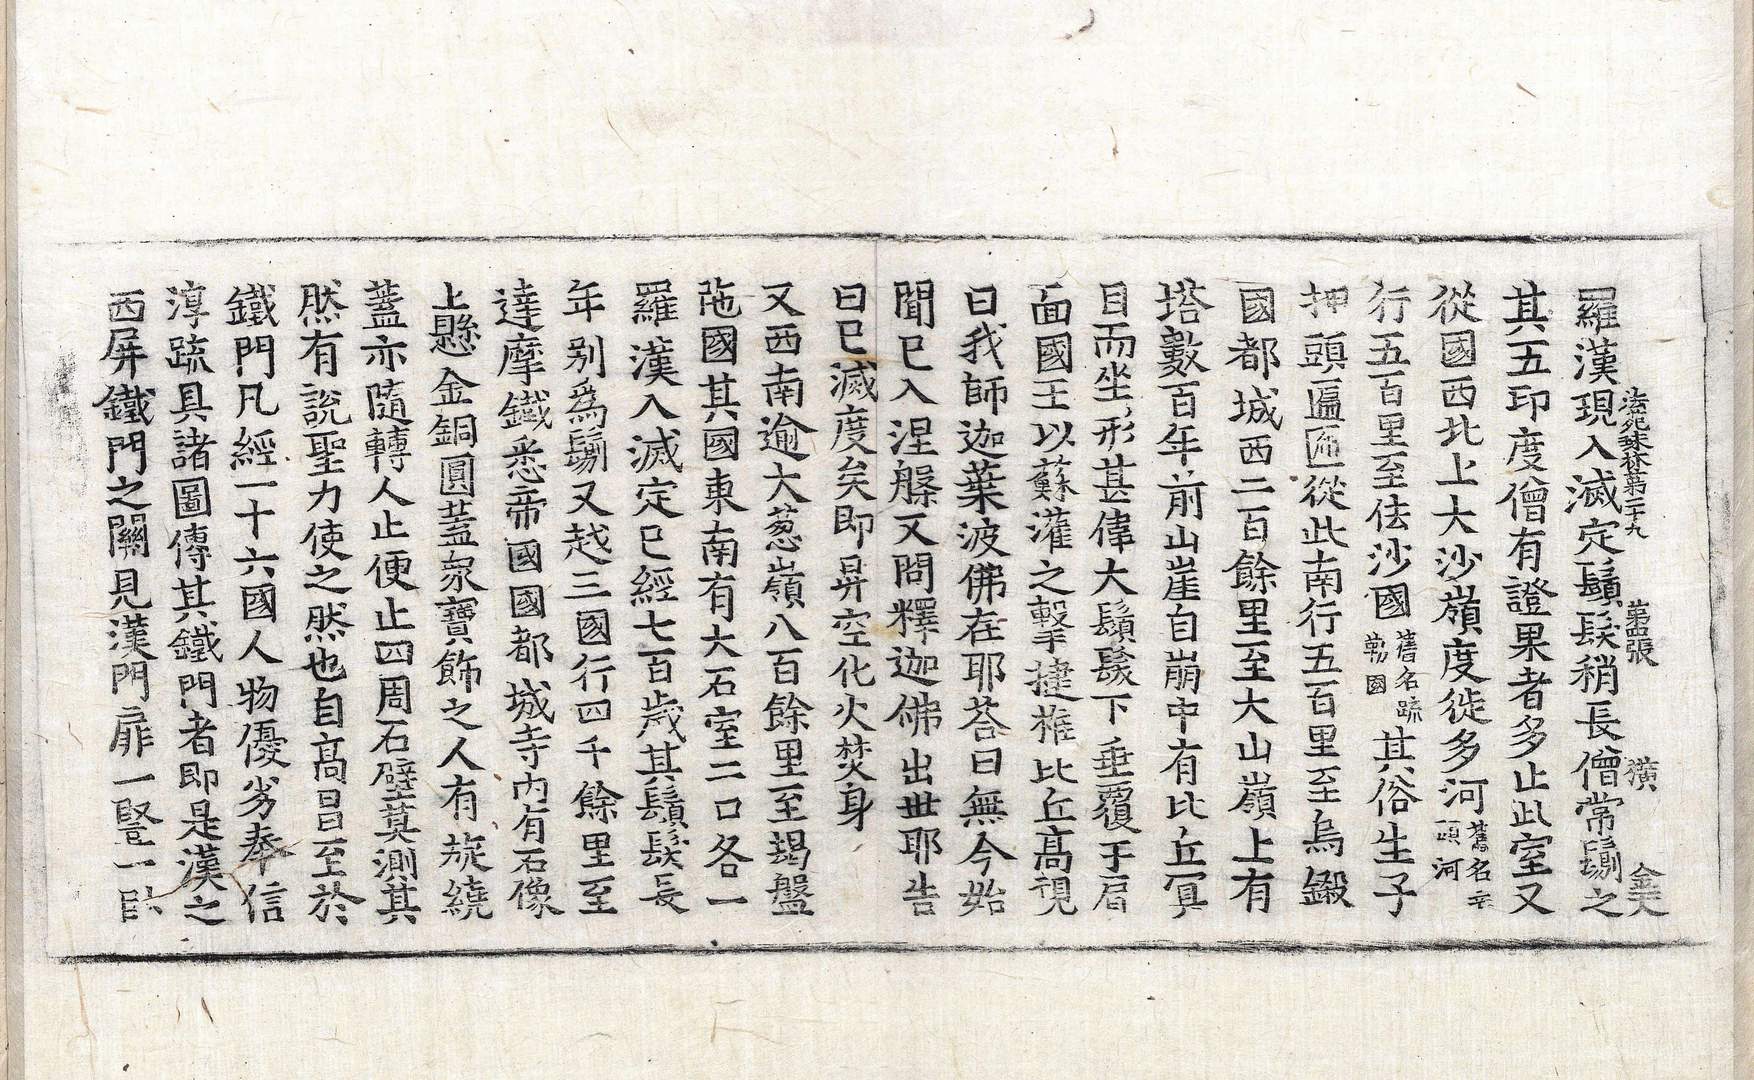 法苑珠林第二十九 第四張 㹰 金天
羅漢現入滅定鬚髮稍長僧常剃之
其五印度僧有證果者多止此室又
從國西北上大沙嶺度徙多河舊名辛頭河
行五百里至佉沙國舊名疏勒國其俗生子
押頭匾㔸從此南行五百里至烏鎩
國都城西二百餘里至大山嶺上有
塔數百年前山崖自崩中有比丘㝠
目而坐形甚偉大鬚髮下垂覆于肩
面國王以蘇灌之擊揵椎比丘高視
曰我師迦葉波佛在耶荅曰無今始
聞已入涅槃又問釋迦佛出丗耶告
曰已滅度矣即昇空化火焚身
又西南逾大葱嶺八百餘里至朅盤
陁國其國東南有大石室二口各一
羅漢入滅定已經七百歲其鬚髮長
年別爲剃又越三國行四千餘里至
達摩鐵悉帝國國都城寺內有石像
上懸金銅圓蓋衆寶飾之人有旋繞
蓋亦隨轉人止便止四周石壁莫測其
然有說聖力使之然也自高昌至於
鐵門凡經一十六國人物優劣奉信
淳疏具諸圖傳其鐵門者即是漢之
西屏鐵門之關見漢門扉一竪一臥